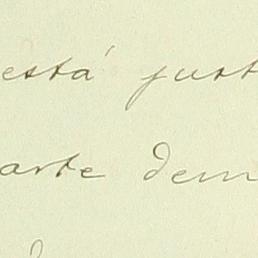 está just
arte dem